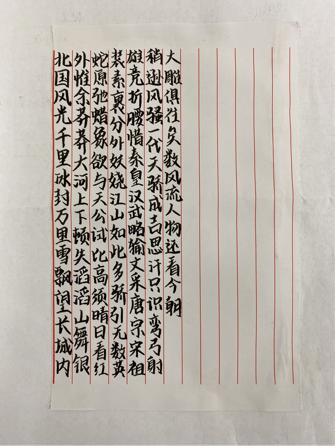 北国风光千里冰封万里雪飘望长城内
外惟余莽莽大河上下顿失滔滔山舞银
蛇原驰蜡象欲与天公试比高须晴日看红
装素裹分外妖娆江山如此多骄引无数英
雄竞折腰惜秦皇汉武略输文采唐宗宋祖
稍逊风骚一代天骄成吉思汗只识弯弓射
大雕俱往矣数风流人物还看今朝